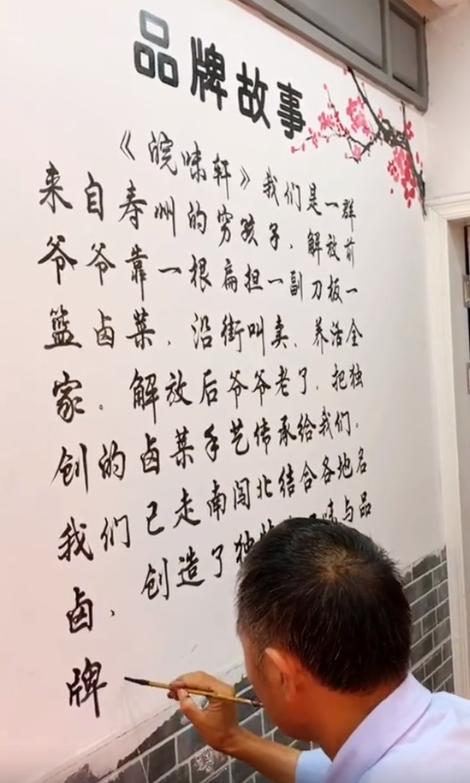 品牌故事
《皖味轩》我们是一群
来自寿州的穷孩子、解放前
爷爷靠一根扁担一副刀板一
篮卤菜、沿街叫卖、养活全
家。解放后爷爷老了、把独
创的卤菜手艺传承给我们。
我们已走南闯北结合各地名
卤、创造了独味与品
牌